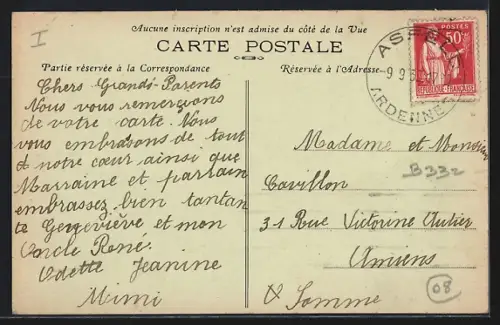 I
Aucune inscription n'est admise du côté de la Vue
CARTE POSTALE
Partie réservée à la Correspondance
Réservée à l'Adresse
POSTES
50c
REPUBLIQUE FRANÇAISE
ASFELD
9 9
ARDENNES
Chers Grands-Parents
Nous vous remerçons
de votre carte. Nous
vous embrasons de tout
notre cœur ainsi que
Marraine et parrain
embrassez bien tantan
te Geneviève et mon
Oncle René.
Odette Jeanine
Mimi
Madame et Monsieur
B332
Cavillon
31 Rue Victorine Autier
Amiens
Somme
08